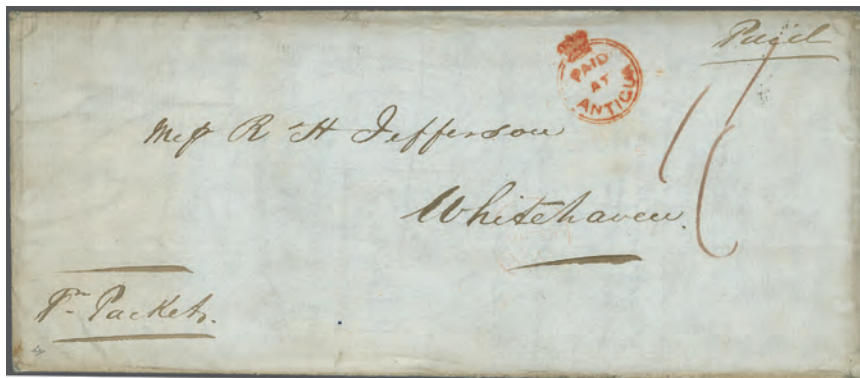 Paid
PAID
AT
ANTIGUA
Mess R & H Jefferson
Whitehaven.
1/
Pr. Packet.